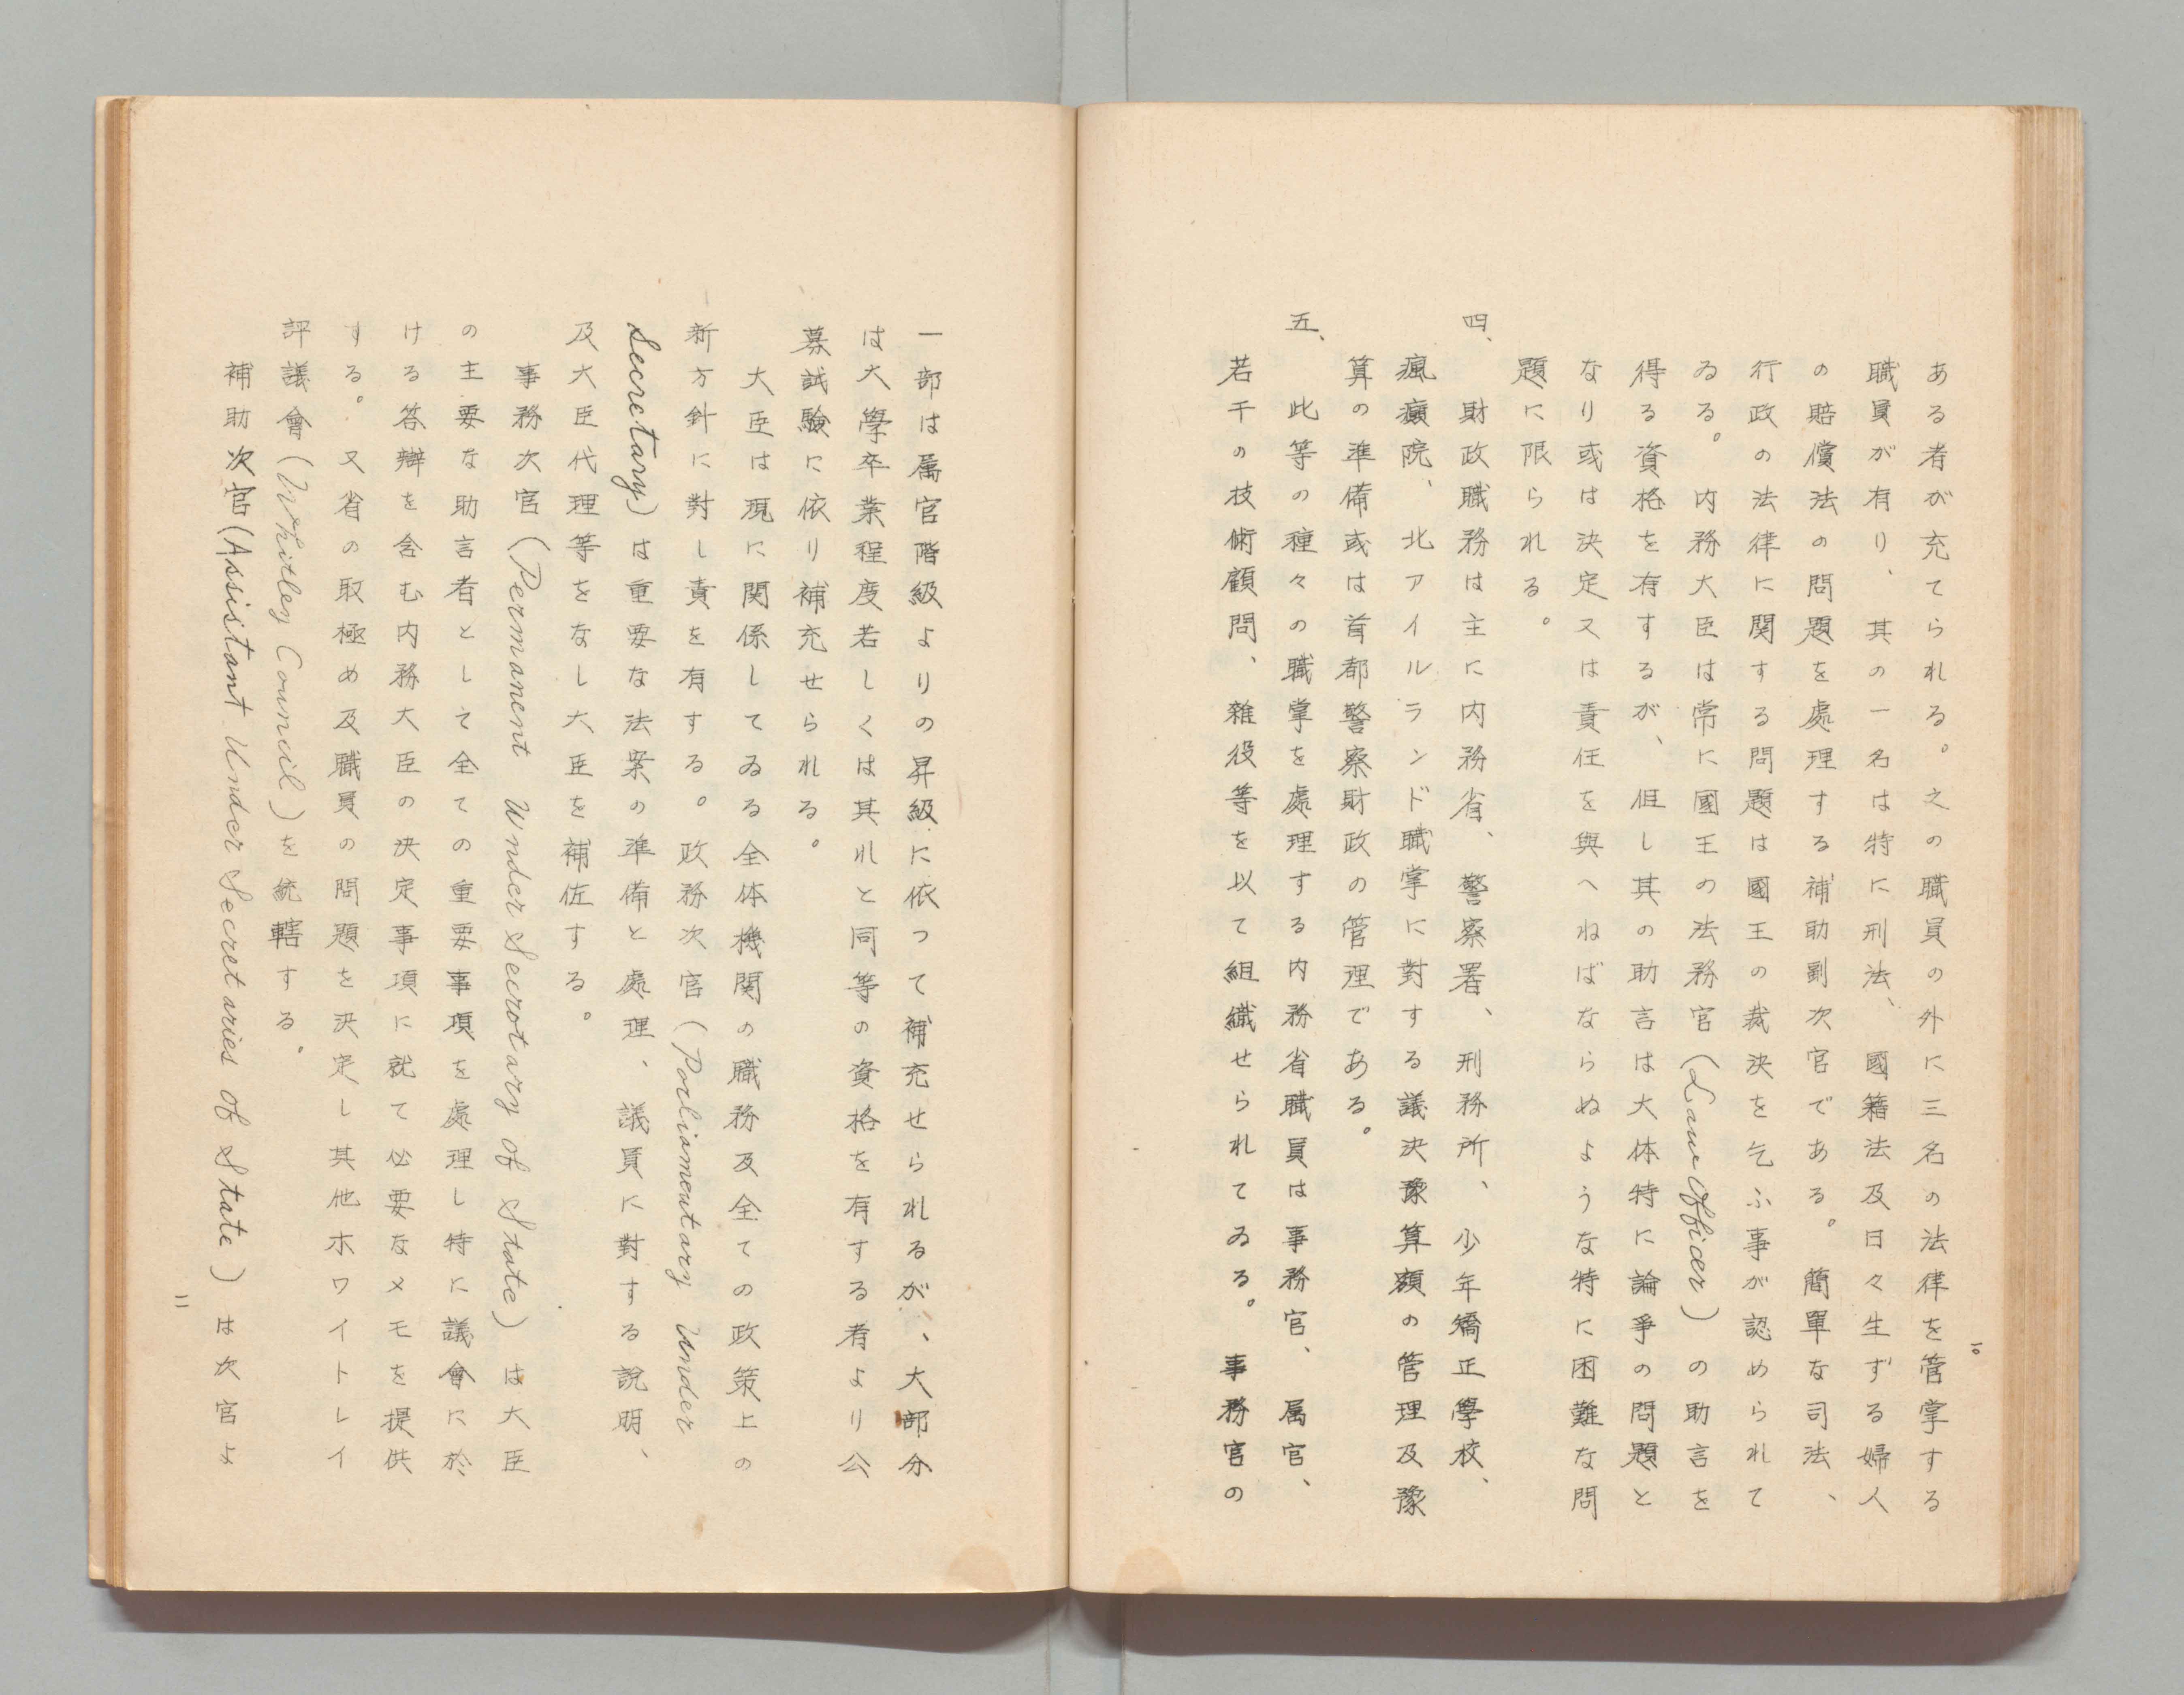 ある者が充てられる。之の職員の外に三名の法律を管掌する
職員が有り、其の一名は特に刑法、國籍法及日々生ずる婦人
の賠償法の問題を處理する補助副次官である。簡單な司法、
行政の法律に関する問題は國王の裁決を乞ふ事が認められて
ゐる。内務大臣は常に國王の法務官(Law Officer)の助言を
得る資格を存するが、但し其の助言は大体特に論爭の問題と
なり或は決定又は責任を與へねばならぬような特に困難な問
題に限られる。
四、財政職務は主に内務省、警察署、刑務所、少年矯正學校、
瘋癲院、北アイルランド職掌に對する議決豫算額の管理及豫
算の準備或は首都警察財政の管理である。
五、此等の種々の職掌を處理する内務省職員は事務官、属官、
若干の技術顧問、雜役等を以て組織せられてゐる。事務官の
一〇
一部は属官階級よりの昇級に依って補充せられるが、大部分
は大學卒業程度若しくは其れと同等の資格を有する者より公
募試驗に依り補充せられる。
大臣は現に関係してゐる全体機関の職務及全ての政策上の
新方針に對し責を有する。政務次官(Parliamentary Under
Secretary)は重要な法案の準備と處理、議員に對する説明、
及大臣代理等をなし大臣を補佐する。
事務次官(Permanent Under Secrotary of State)は大臣
の主要な助言者として全ての重要事項を處理し特に議會に於
ける答辯を含む内務大臣の決定事項に就て必要なメモを提供
する。又省の取極め及職員の問題を決定し其他ホワイトレイ
評議會(Whitley Council)を統轄する。
補助次官(Assistant Under Secretaries of State)は次官よ
一一